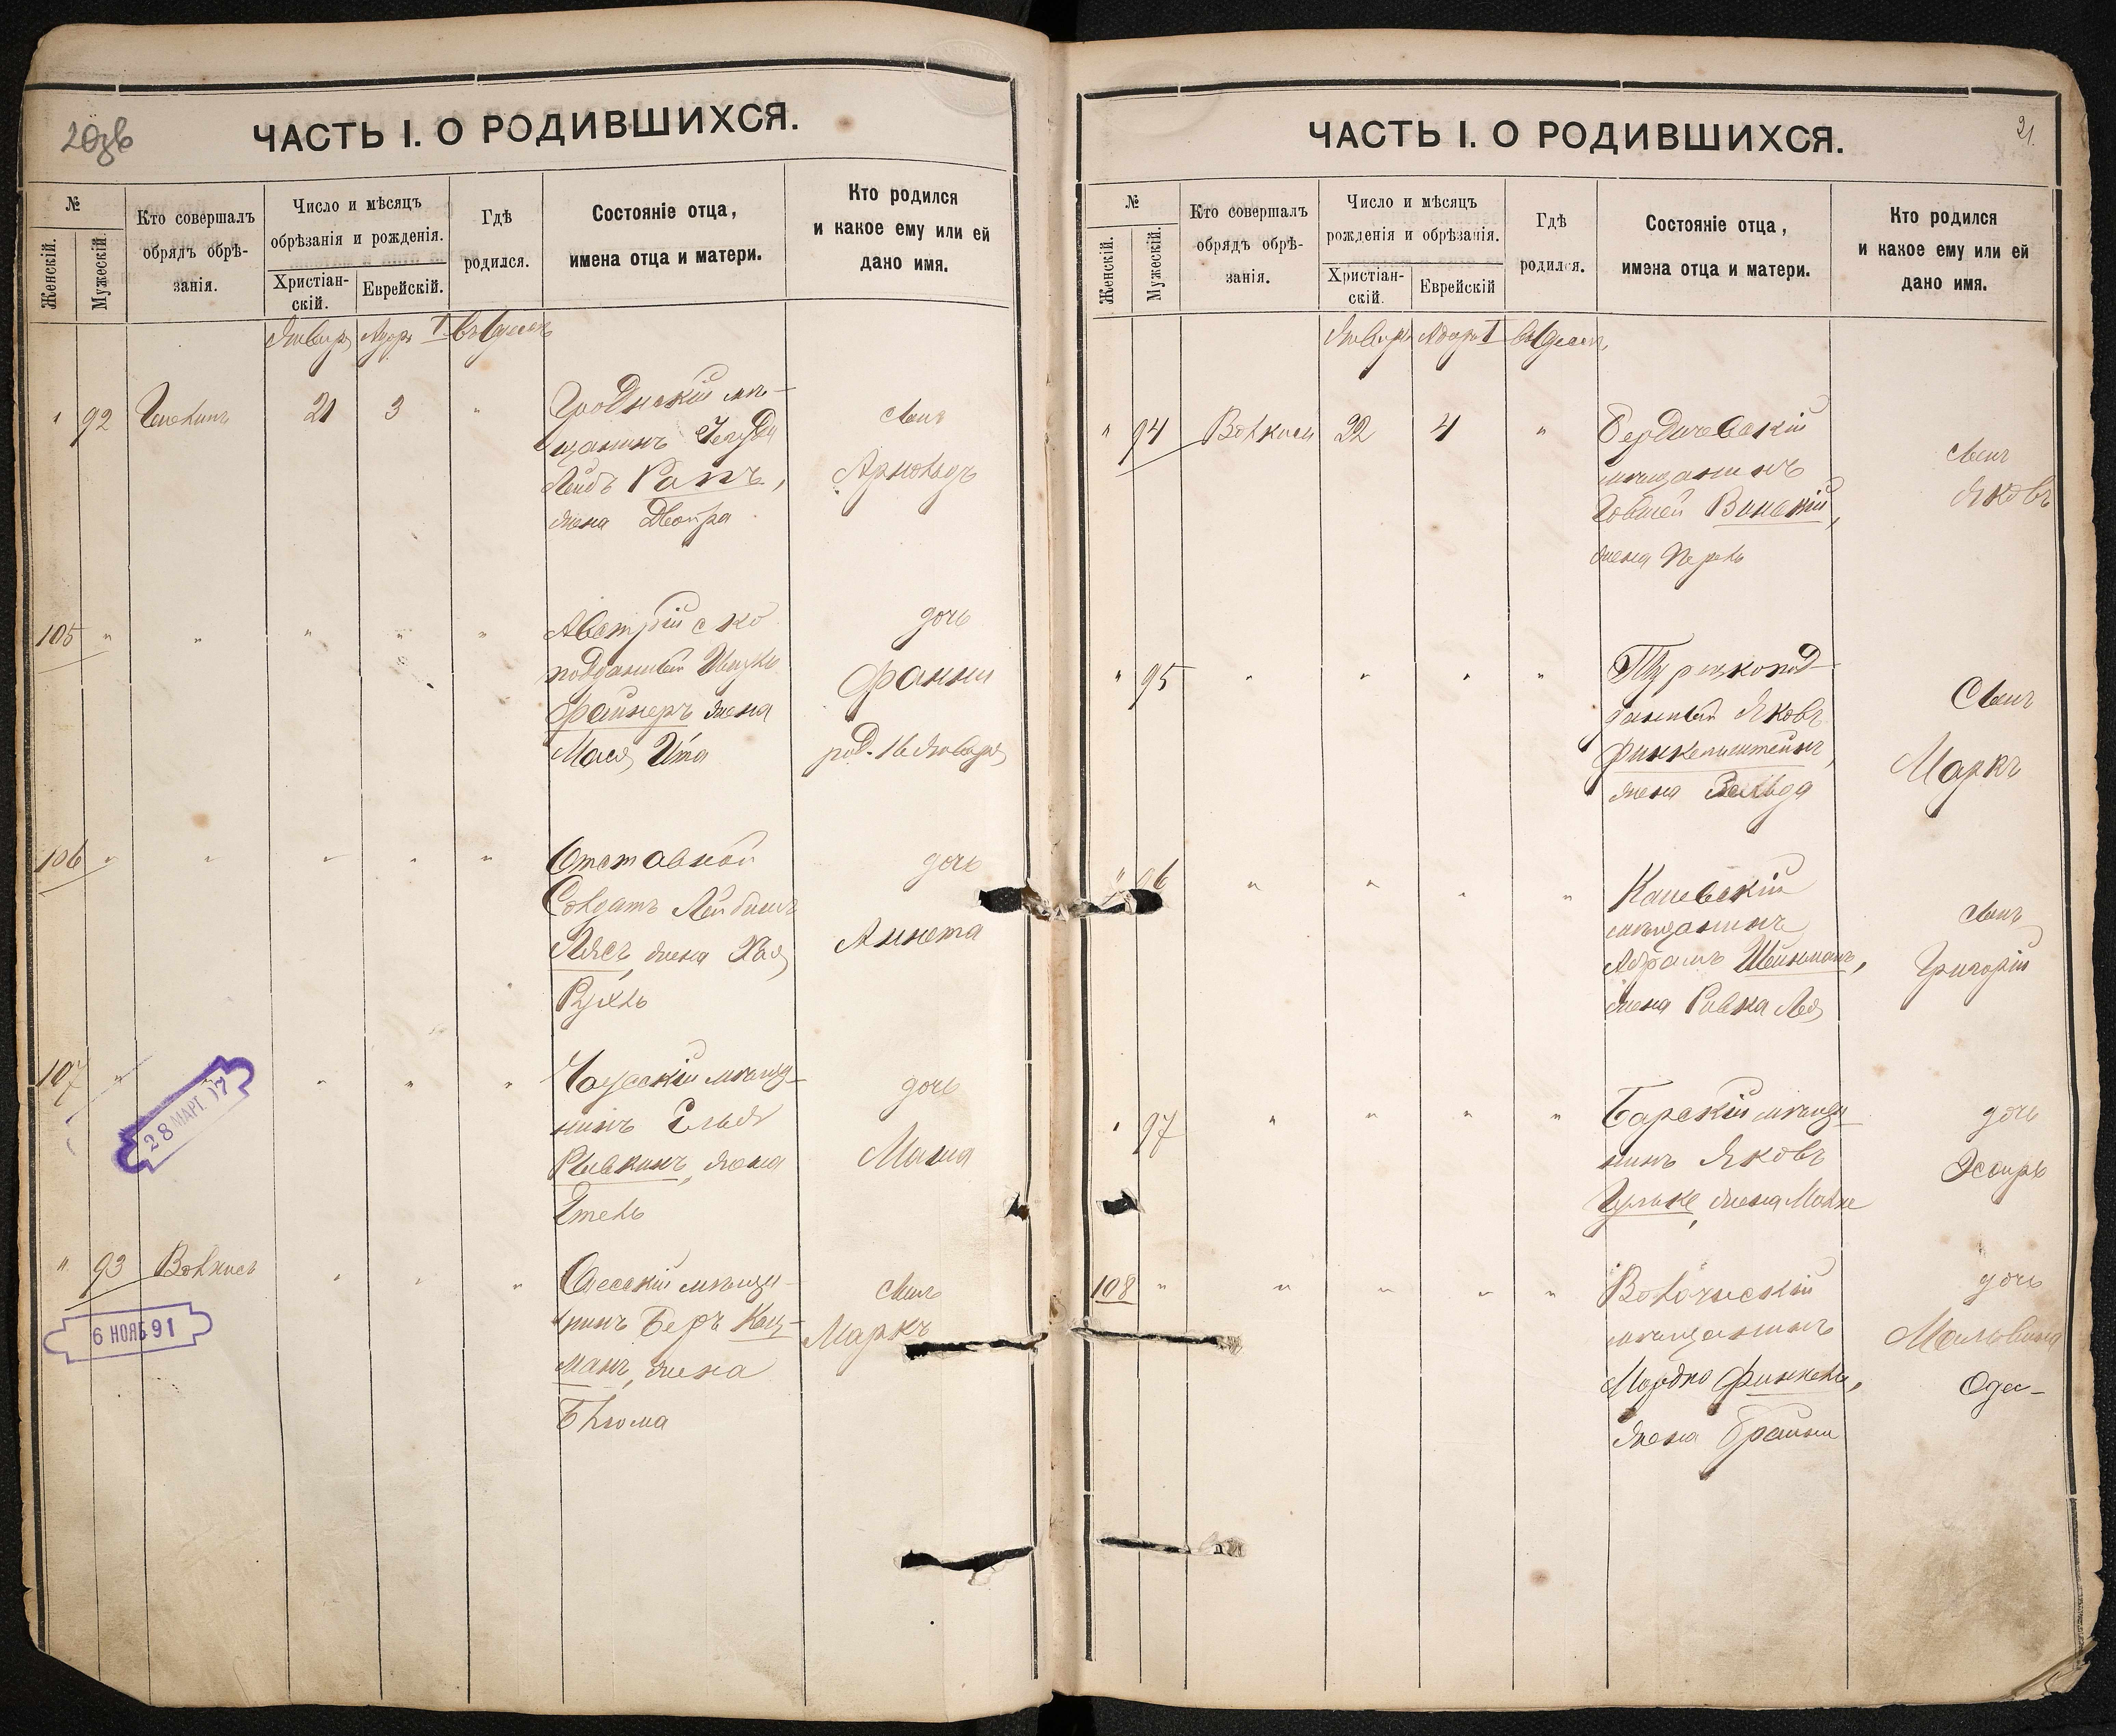 20об
ЧАСТЬ I. О РОДИВШИХСЯ.
№
Женскій.
Мужескій.
Кто совершалъ
обрядъ обрѣ-
занія.
Число и мѣсяцъ
обрѣзанія и рожденія.
Христіан-
скій.
Еврейскій.
Гдѣ
родился.
Состояніе отца,
имена отца и матери.
Кто родился
и какое ему или ей
дано имя.
Январь Адаръ I въ Одессѣ
" 92 21 3 "
Гродненскій мѣ-
щанинъ Іегуда
Лейбъ Рапъ,
жена Двойра
сынъ
Арнольдъ
105 " " " " "
Австрійско
подданный Ицко
Файнеръ жена
Мася Ита
дочь
Фанни
род. 16 Января
106 " " " " "
Отставной
Солдатъ Лейбишъ
Лясъ, жена Хая
Рухль
дочь
Аннета
107 " " " "
28 МАРТ. 17
Чаусскій мѣща-
нинъ Елья
Рывкинъ, жена
Этель
дочь
Маша
" 93 Волкисъ " " "
6 НОЯБ 91
Одесскій мѣща-
нинъ Беръ Кац-
манъ, жена
Блюма
сынъ
Маркъ
ЧАСТЬ I. О РОДИВШИХСЯ.
21.
№
Женскій.
Мужескій.
Кто совершалъ
обрядъ обрѣ-
занія.
Число и мѣсяцъ
рожденія и обрѣзанія.
Христіан-
скій.
Еврейскій
Гдѣ
родился.
Состояніе отца,
имена отца и матери.
Кто родился
и какое ему или ей
дано имя.
Январь Адаръ I въ Одессѣ
" 94 Волкисъ 22 4 "
Бердичевскій
мѣщанинъ
Іовшей Винскій,
жена Перль
сынъ
Яковъ
" 95 " " " "
Турецкопод-
данный Яковъ
Финкельштейнъ,
жена Зельда
Сынъ
Маркъ
" 96 " " " "
Каневскій
мѣщанинъ
Абрамъ Шейнманъ,
жена Ривка Лея
сынъ
Григорій
" 97 " " " "
Барскій мѣща-
нинъ Яковъ
Гульке, жена Малке
дочь
Эсѳирь
108 " " " " "
Волочисскій
мѣщанинъ
Мордко Финкель,
жена Брайна
дочь
Мальвина
Ода-